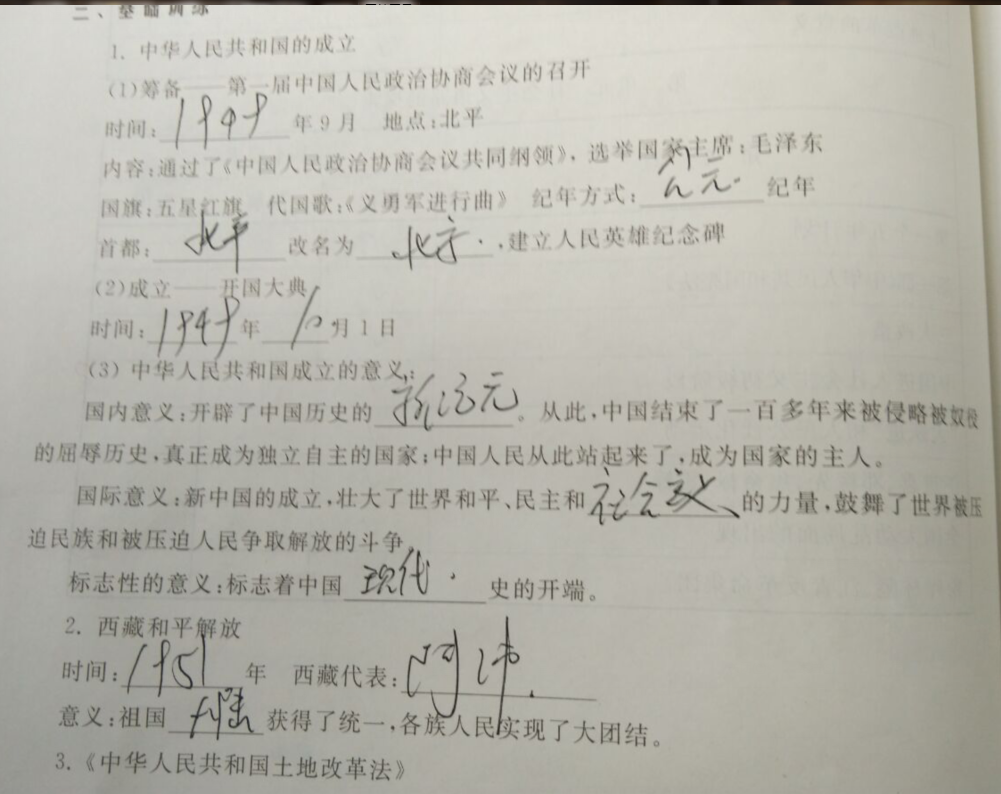 二、基础训练
1. 中华人民共和国的成立
(1)筹备——第一届中国人民政治协商会议的召开
时间:1949年9月 地点:北平
内容:通过了《中国人民政治协商会议共同纲领》,选举国家主席:毛泽东
国旗:五星红旗 代国歌:《义勇军进行曲》 纪年方式:公元纪年
首都:北平改名为北京,建立人民英雄纪念碑
(2)成立——开国大典
时间:1949年10月1日
(3)中华人民共和国成立的意义:
国内意义:开辟了中国历史的新纪元。从此,中国结束了一百多年来被侵略被奴役
的屈辱历史,真正成为独立自主的国家;中国人民从此站起来了,成为国家的主人。
国际意义:新中国的成立,壮大了世界和平、民主和社会主义的力量,鼓舞了世界被压
迫民族和被压迫人民争取解放的斗争
标志性的意义:标志着中国现代史的开端。
2. 西藏和平解放
时间:1951年 西藏代表:阿沛
意义:祖国大陆获得了统一,各族人民实现了大团结。
3.《中华人民共和国土地改革法》